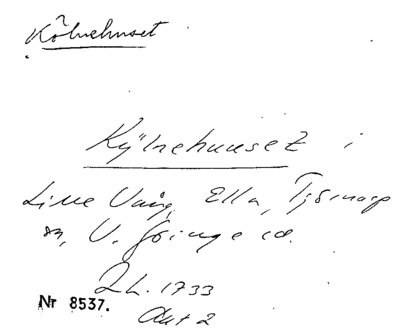 Kölnehuset
Kylnehuuset i
Lille Vång, Ella, Tjörnarp
sn, V. Göinge hd.
2 h. 1733
Nr 8537. Akt 2